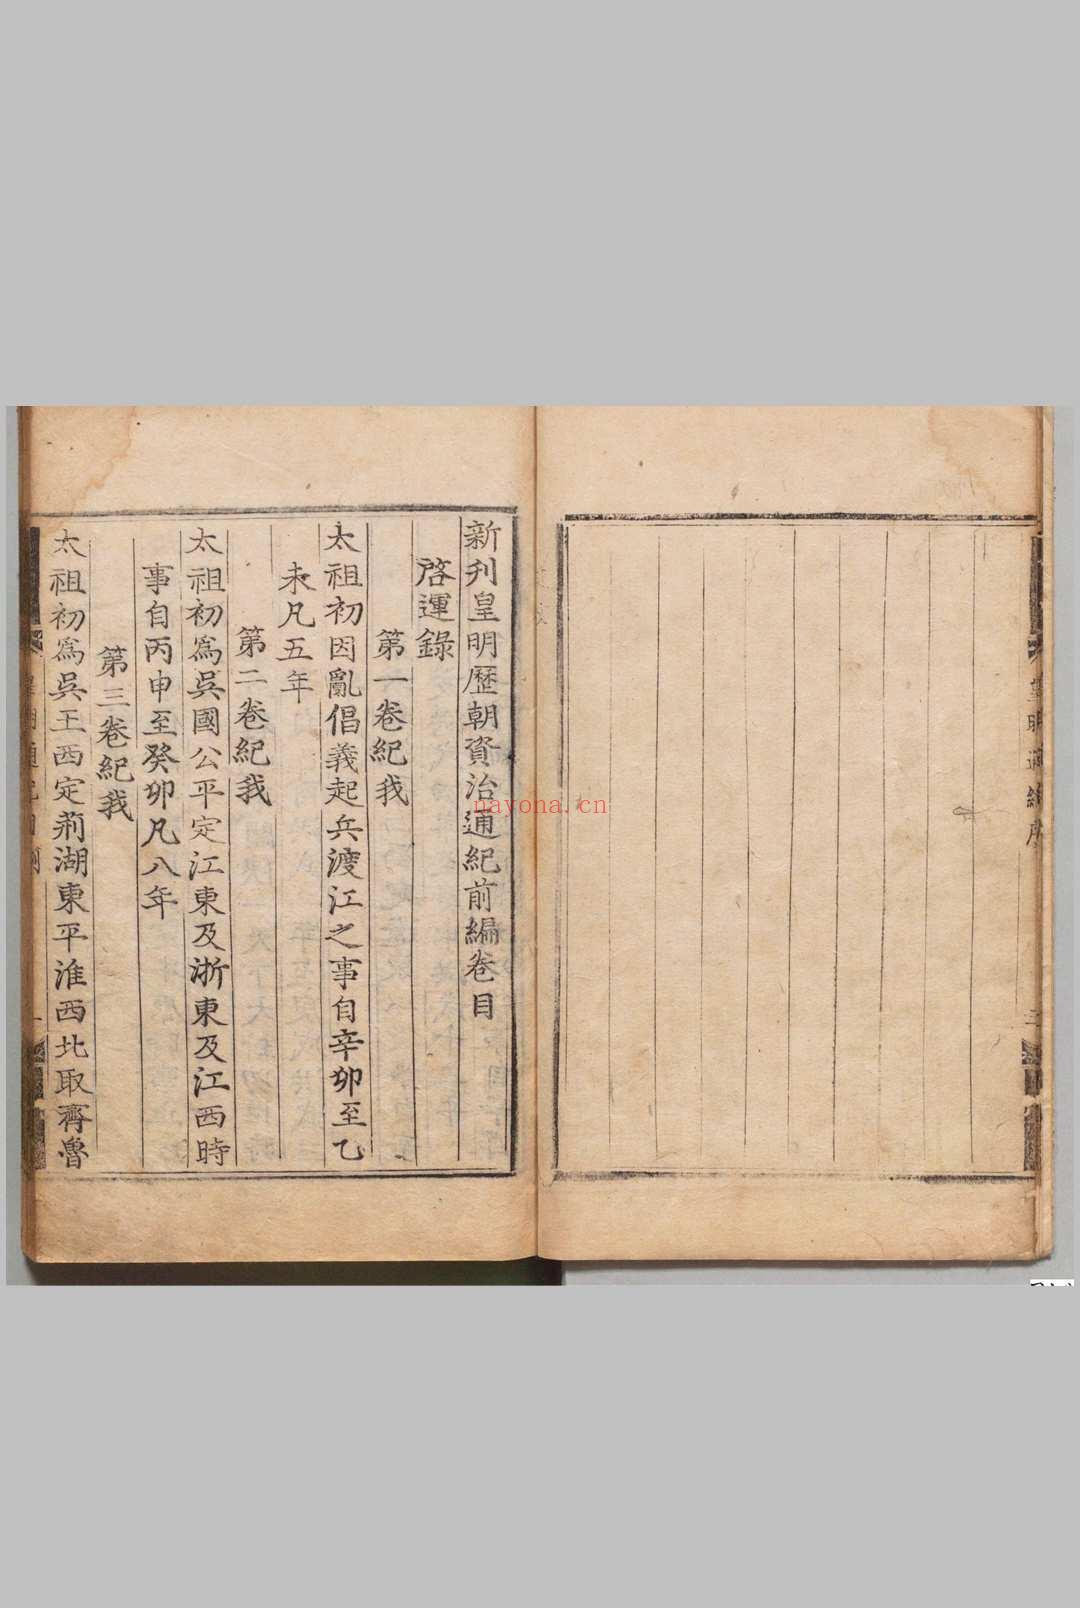 皇明通紀序
三
新刊皇明歷朝資治通紀前編卷目
啓運錄
第一卷紀我
太祖初因亂倡義起兵渡江之事自辛卯至乙
未凡五年
第二卷紀我
太祖初爲吳國公平定江東及浙東及江西時
事自丙申至癸卯凡八年
第三卷紀我
太祖初爲吳王西定荊湖東平淮西北取齊魯
nayona.cn